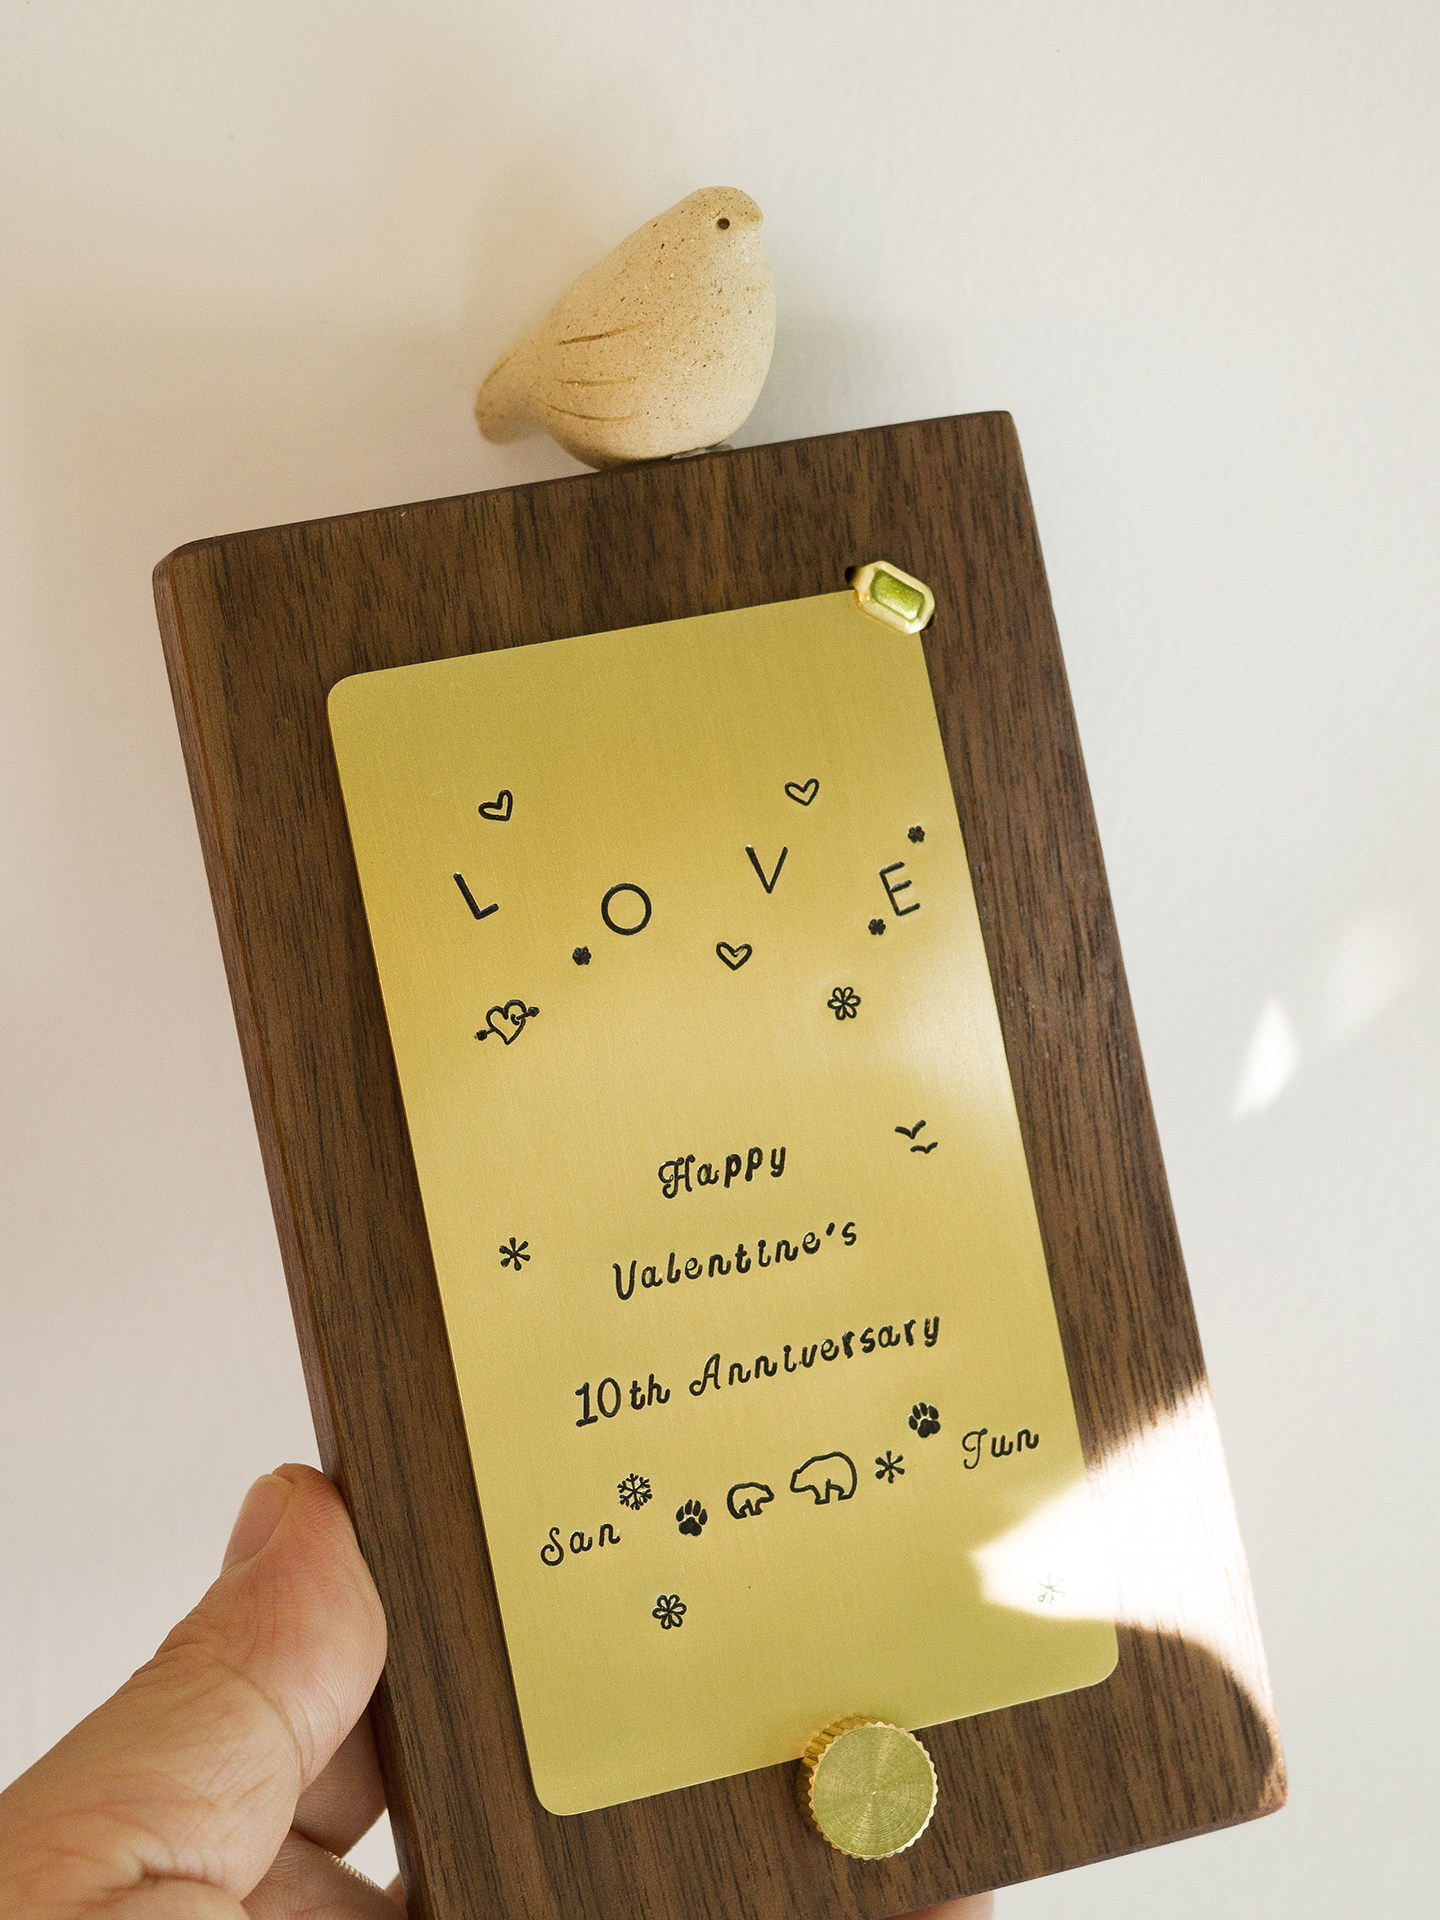 LOVE
Happy
Valentine's
10th Anniversary
San Jun